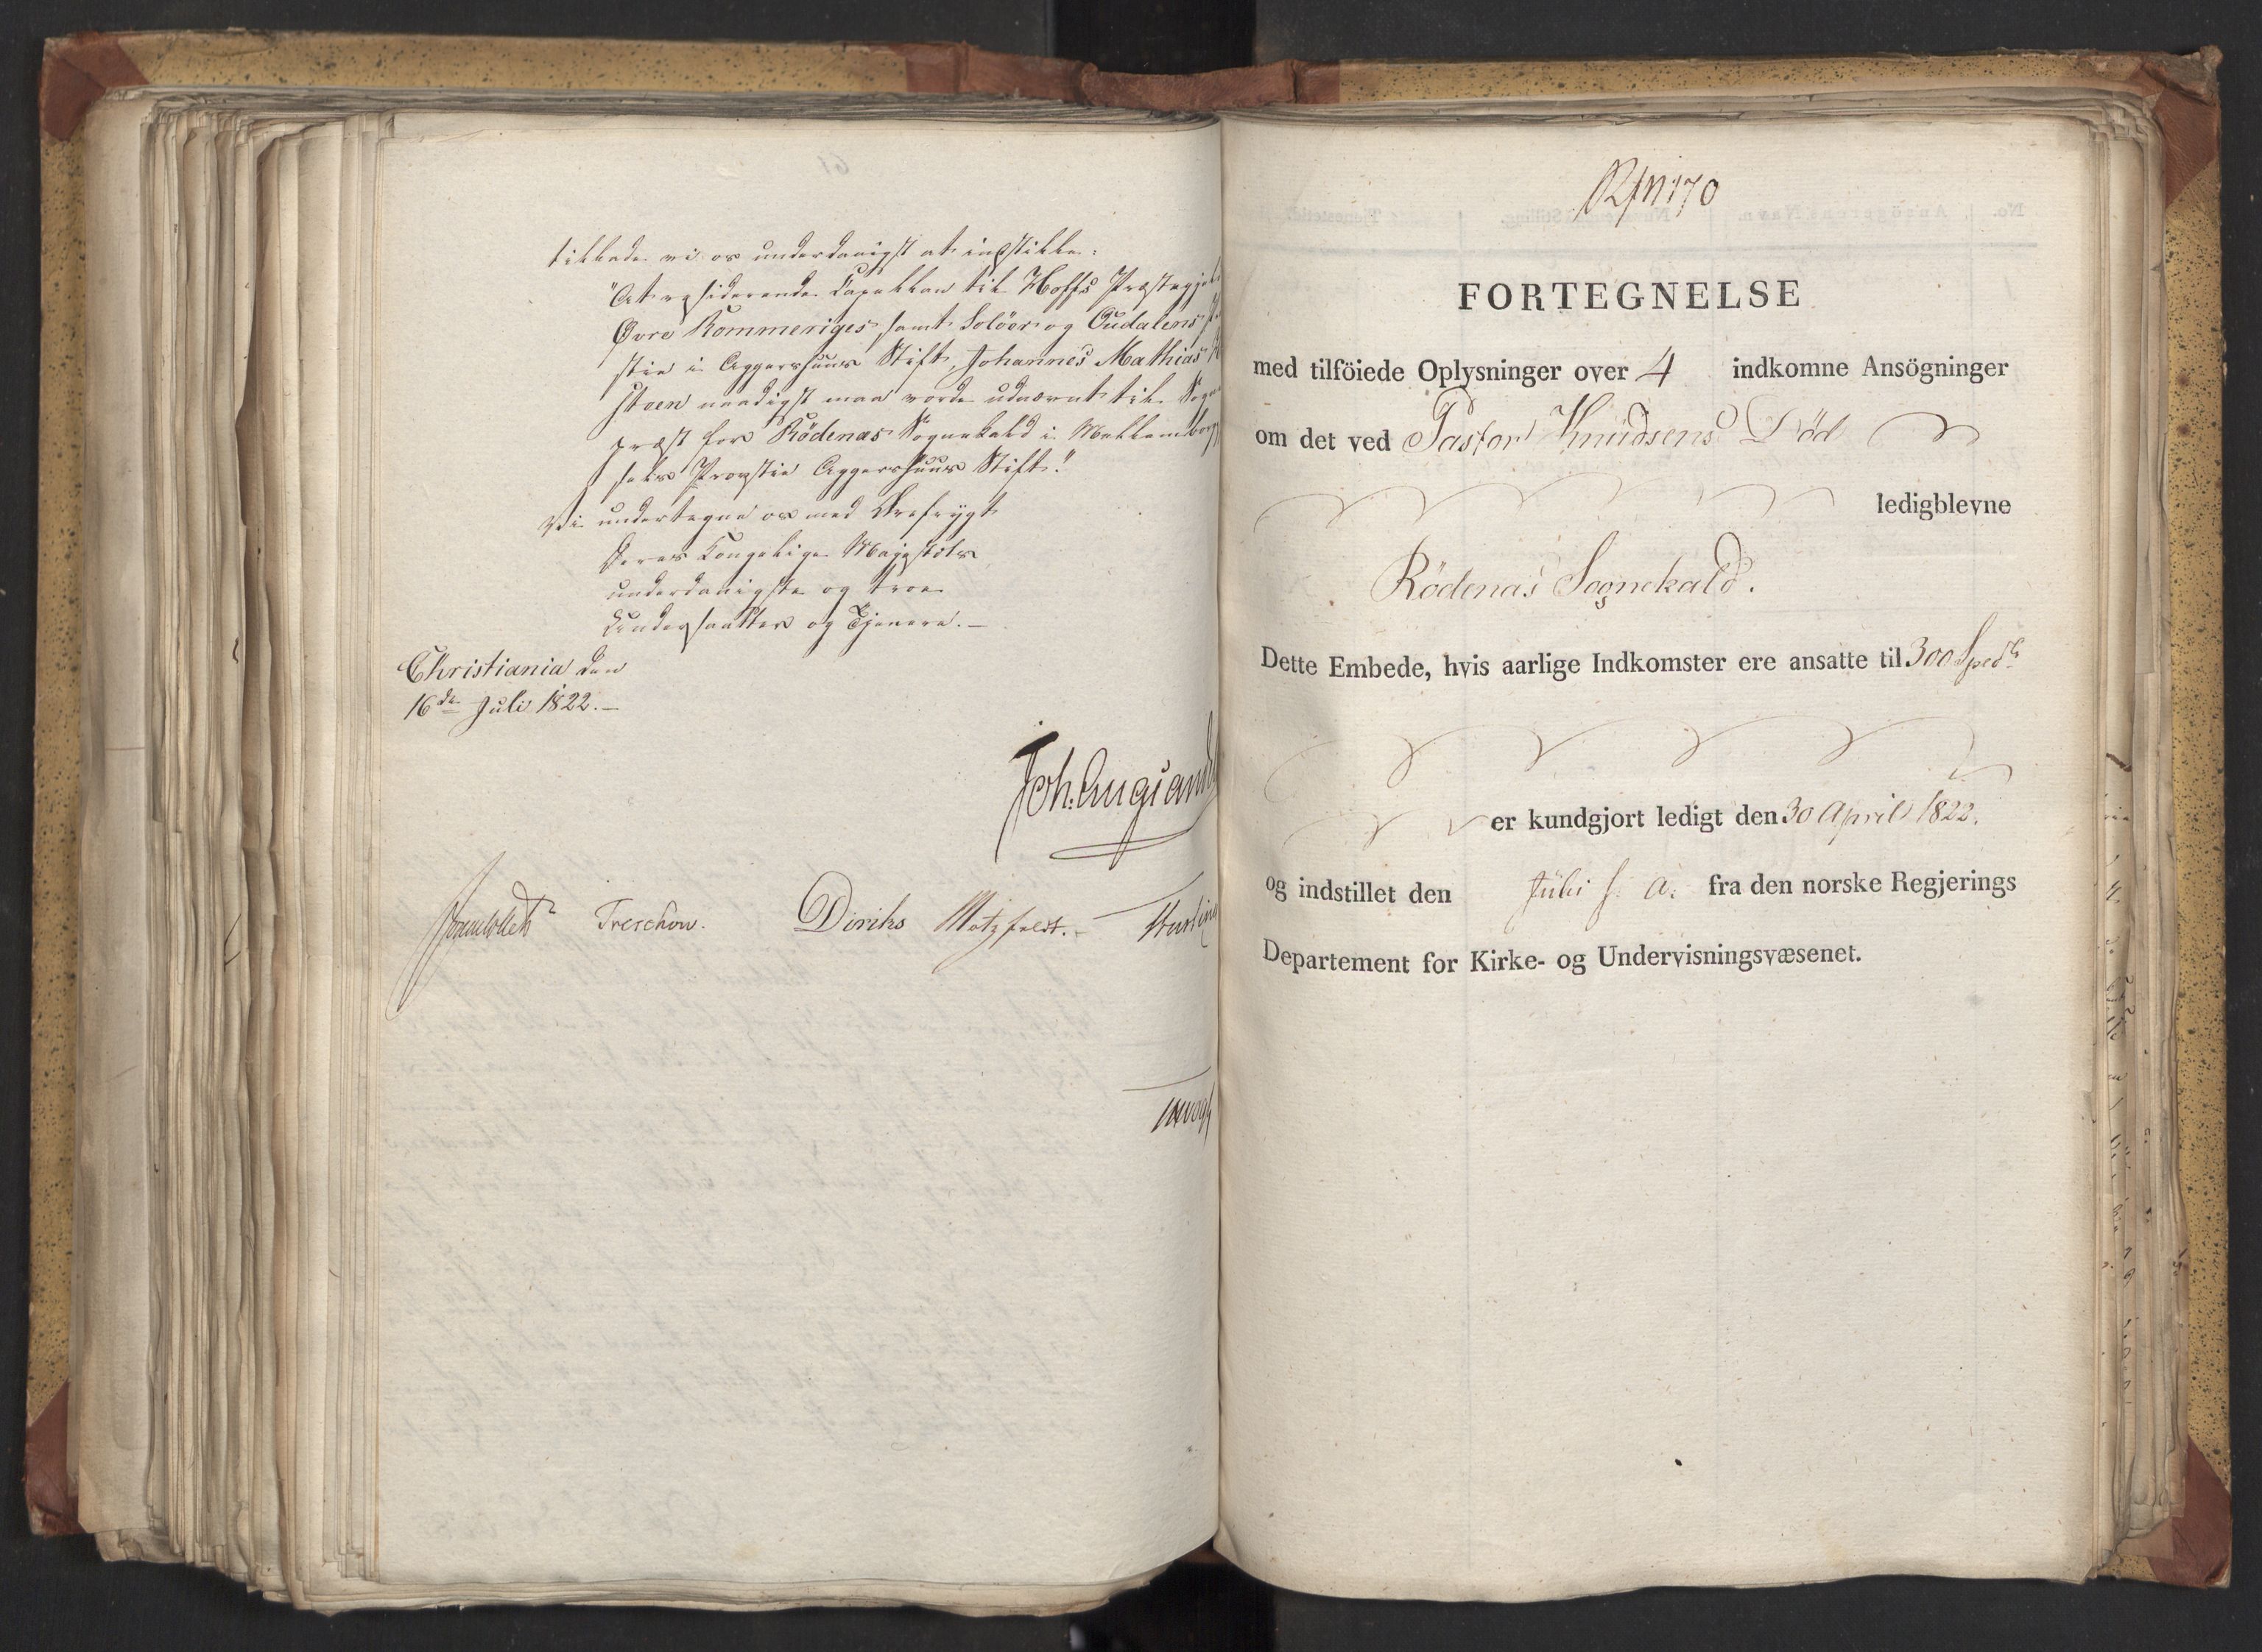 tillade vi os underdanigst at indstille:
"At residerende Capellan til Hoffs Præstegjeld
Øvre Rommeriges samt Solöer og Oudalens
stie i Aggershuus Stift, Johannes Mathias
Steen naadigst maa vorde udnævnt til Sogne
præst for Rödenæs Sognekald i Mellemborge
sels Provstie Aggershuus Stift."
Vi undertegne os med Ærefrygt
Deres Kongelige Majestæts
underdanigste og troe
Undersaatter og Tjenere. —
Christiania den
16de Juli 1822. —
Joh. Aug. Sandels
Sommerhielm Treschow. Diriks Motzfeldt. -
JHVogt
No 170
FORTEGNELSE
med tilföiede Oplysninger over 4 indkomne Ansögninger
om det ved Pastor Knudsens Död
ledigblevne
Rödenæs Sognekald.
Dette Embede, hvis aarlige Indkomster ere ansatte til 300 Spedlr
er kundgjort ledigt den 30 April 1822.
og indstillet den Juli s. A. fra den norske Regjerings
Departement for Kirke- og Undervisningsvæsenet.